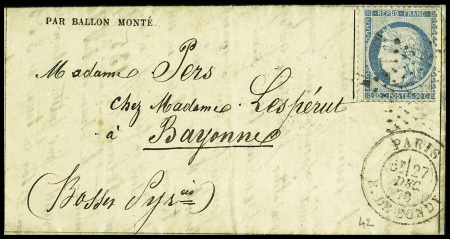 PAR BALLON MONTÉ.
REPUB. FRANC.
Madame Pers
chez Madame Lespérut
à Bayonne
(Basses Pyr ées)
PARIS
27
DEC
70
42